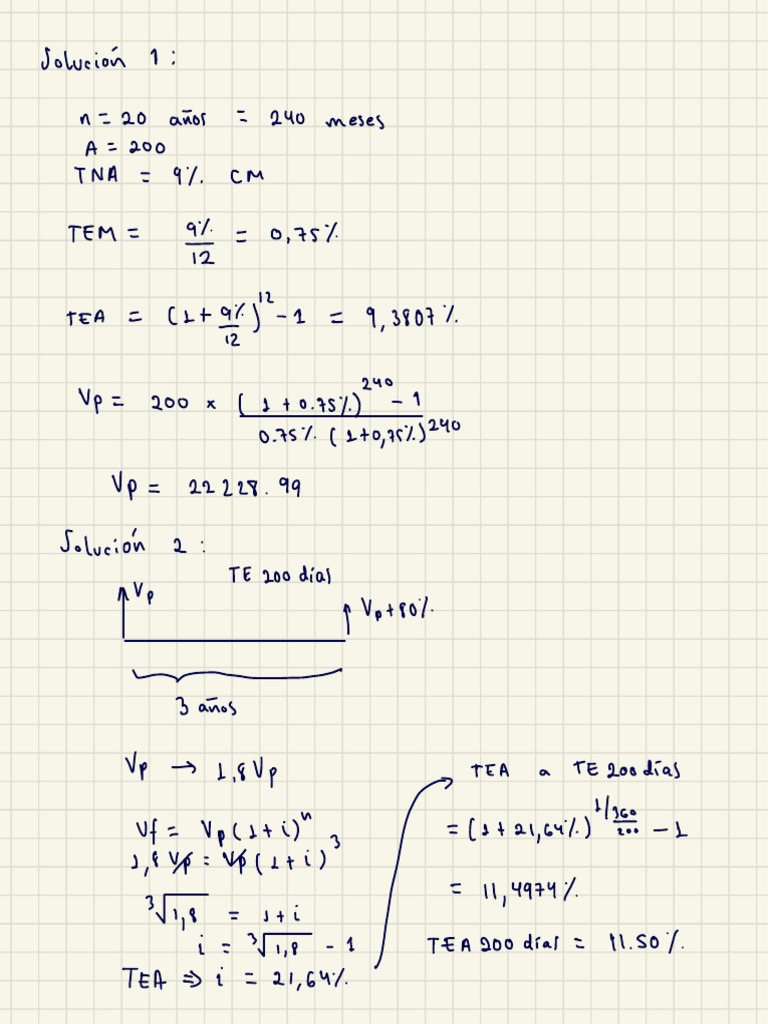 Solución 1:
n = 20 años = 240 meses
A = 200
TNA = 9% CM
TEM = 9%/12 = 0,75%
TEA = (1 + 9%/12)^12 - 1 = 9,3807%
Vp = 200 × ((1 + 0.75%)^240 - 1)/(0.75% (1+0,75%)^240)
Vp = 22228.99
Solución 2:
TE 200 días
Vp
Vp+80%
3 años
Vp → 1,8Vp
Vf = Vp(1+i)^n
1,8 Vp = Vp(1+i)^3
∛1,8 = 1+i
i = ∛1,8 - 1
TEA ⇒ i = 21,64%
TEA a TE 200 días
= (1 + 21,64%)^(1/(360/200)) - 1
= 11,4974%
TEA 200 días = 11.50%.